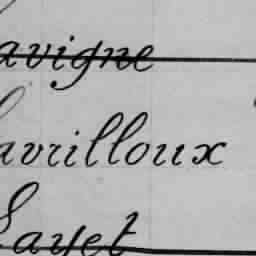 avigne
Lavrilloux
Layet